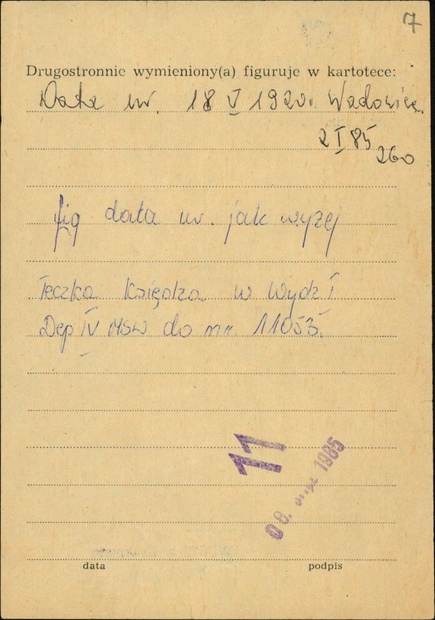 7
Drugostronnie wymieniony(a) figuruje w kartotece:
Data ur. 18 V 1920r. Wadowice
2 I 85
260
fig data ur. jak wyżej
Teczka Księdza w Wydz I
Dep IV MSW do nr. 11053.
11
08. 1985
data podpis